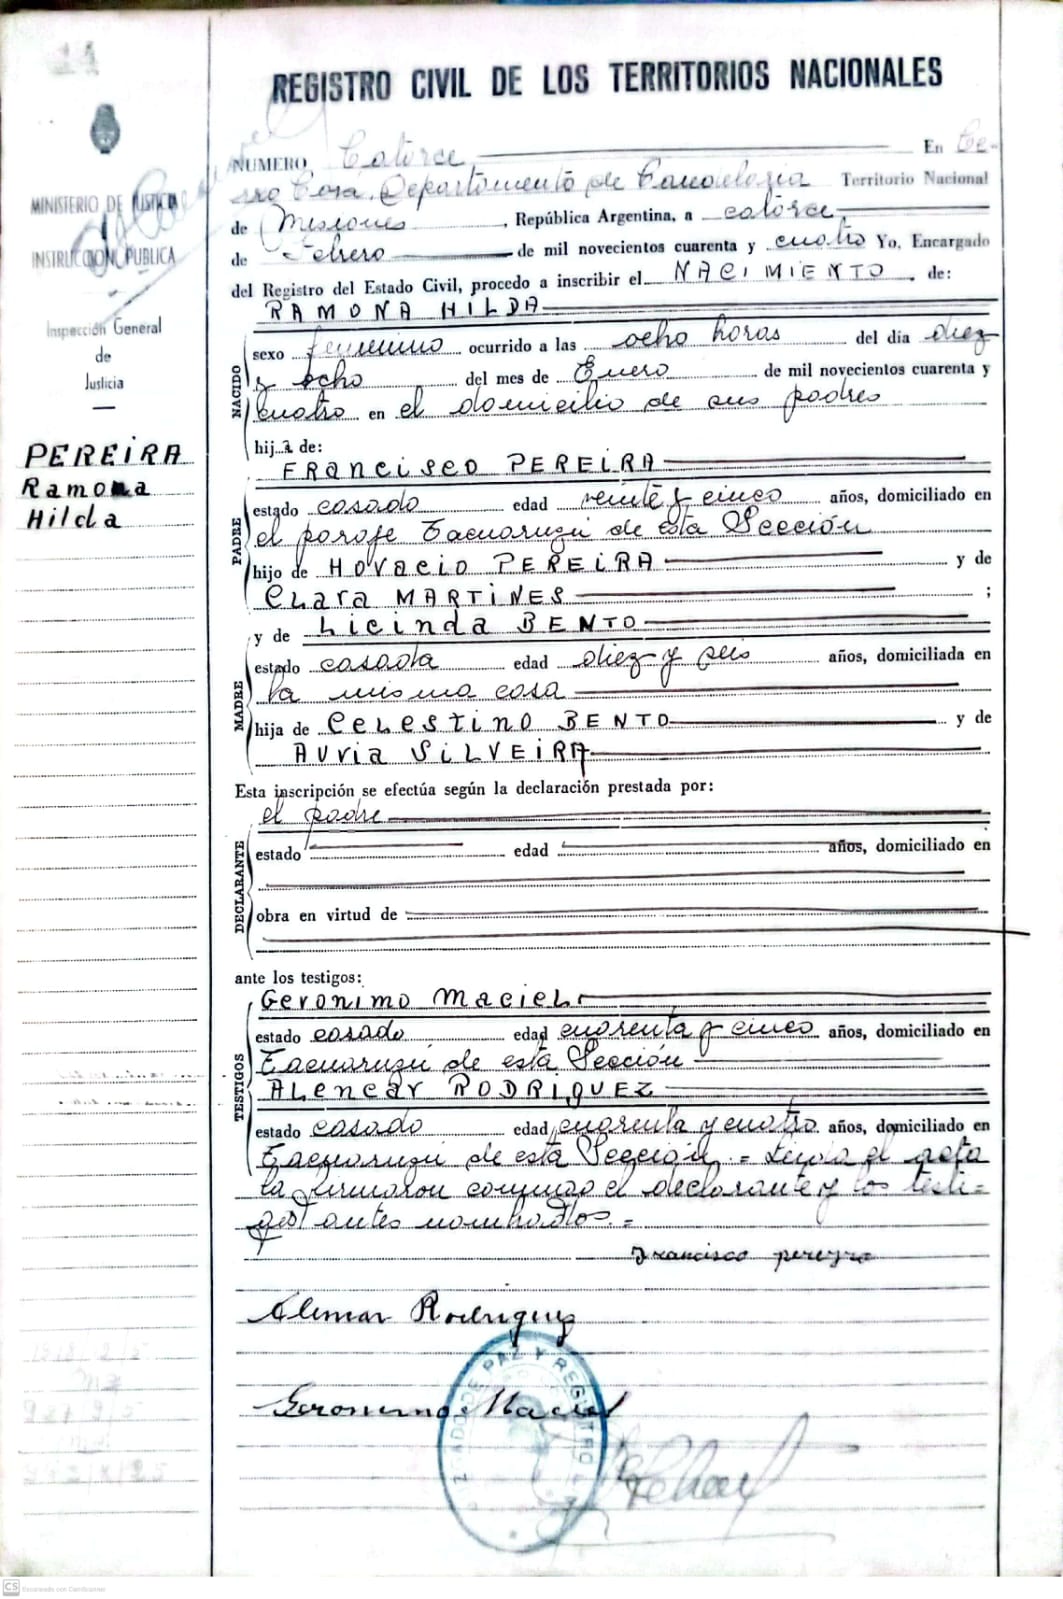 14
REGISTRO CIVIL DE LOS TERRITORIOS NACIONALES
NUMERO Catorce En Ce-
rro Corá, Departamento de Candelaria Territorio Nacional
de Misiones, República Argentina, a catorce
de Febrero de mil novecientos cuarenta y cuatro Yo, Encargado
del Registro del Estado Civil, procedo a inscribir el NACIMIENTO de:
RAMONA HILDA
MINISTERIO DE JUSTICIA
INSTRUCCION PUBLICA
Inspección General
de
Justicia
PEREIRA
Ramona
Hilda
NACIDO
sexo femenino ocurrido a las ocho horas del día diez
y ocho del mes de Enero de mil novecientos cuarenta y
cuatro en el domicilio de sus padres
hija de:
FRANCISCO PEREIRA
PADRE
estado casado edad veinte y cinco años, domiciliado en
el paraje Tacuaruzú de esta Sección
hijo de HORACIO PEREIRA y de
Clara MARTINES ;
y de Licinda BENTO
MADRE
estado casada edad diez y seis años, domiciliada en
la misma casa
hija de Celestino BENTO y de
AUVIA SILVEIRA
Esta inscripción se efectúa según la declaración prestada por:
el padre
DECLARANTE
estado edad años, domiciliado en
obra en virtud de
ante los testigos:
TESTIGOS
Geronimo Maciel
estado casado edad cuarenta y cinco años, domiciliado en
Tacuaruzú de esta Sección
ALENCAR RODRIGUEZ
estado casado edad cuarenta y cuatro años, domiciliado en
Tacuaruzú de esta Sección. = Leida el acta
la firmaron conmigo el declarante y los testi-
gos antes nombrados. =
Francisco pereyra
Alencar Rodriguez
Geronimo Maciel
JUZGADO DE PAZ Y REGISTRO
CS Escaneado con CamScanner